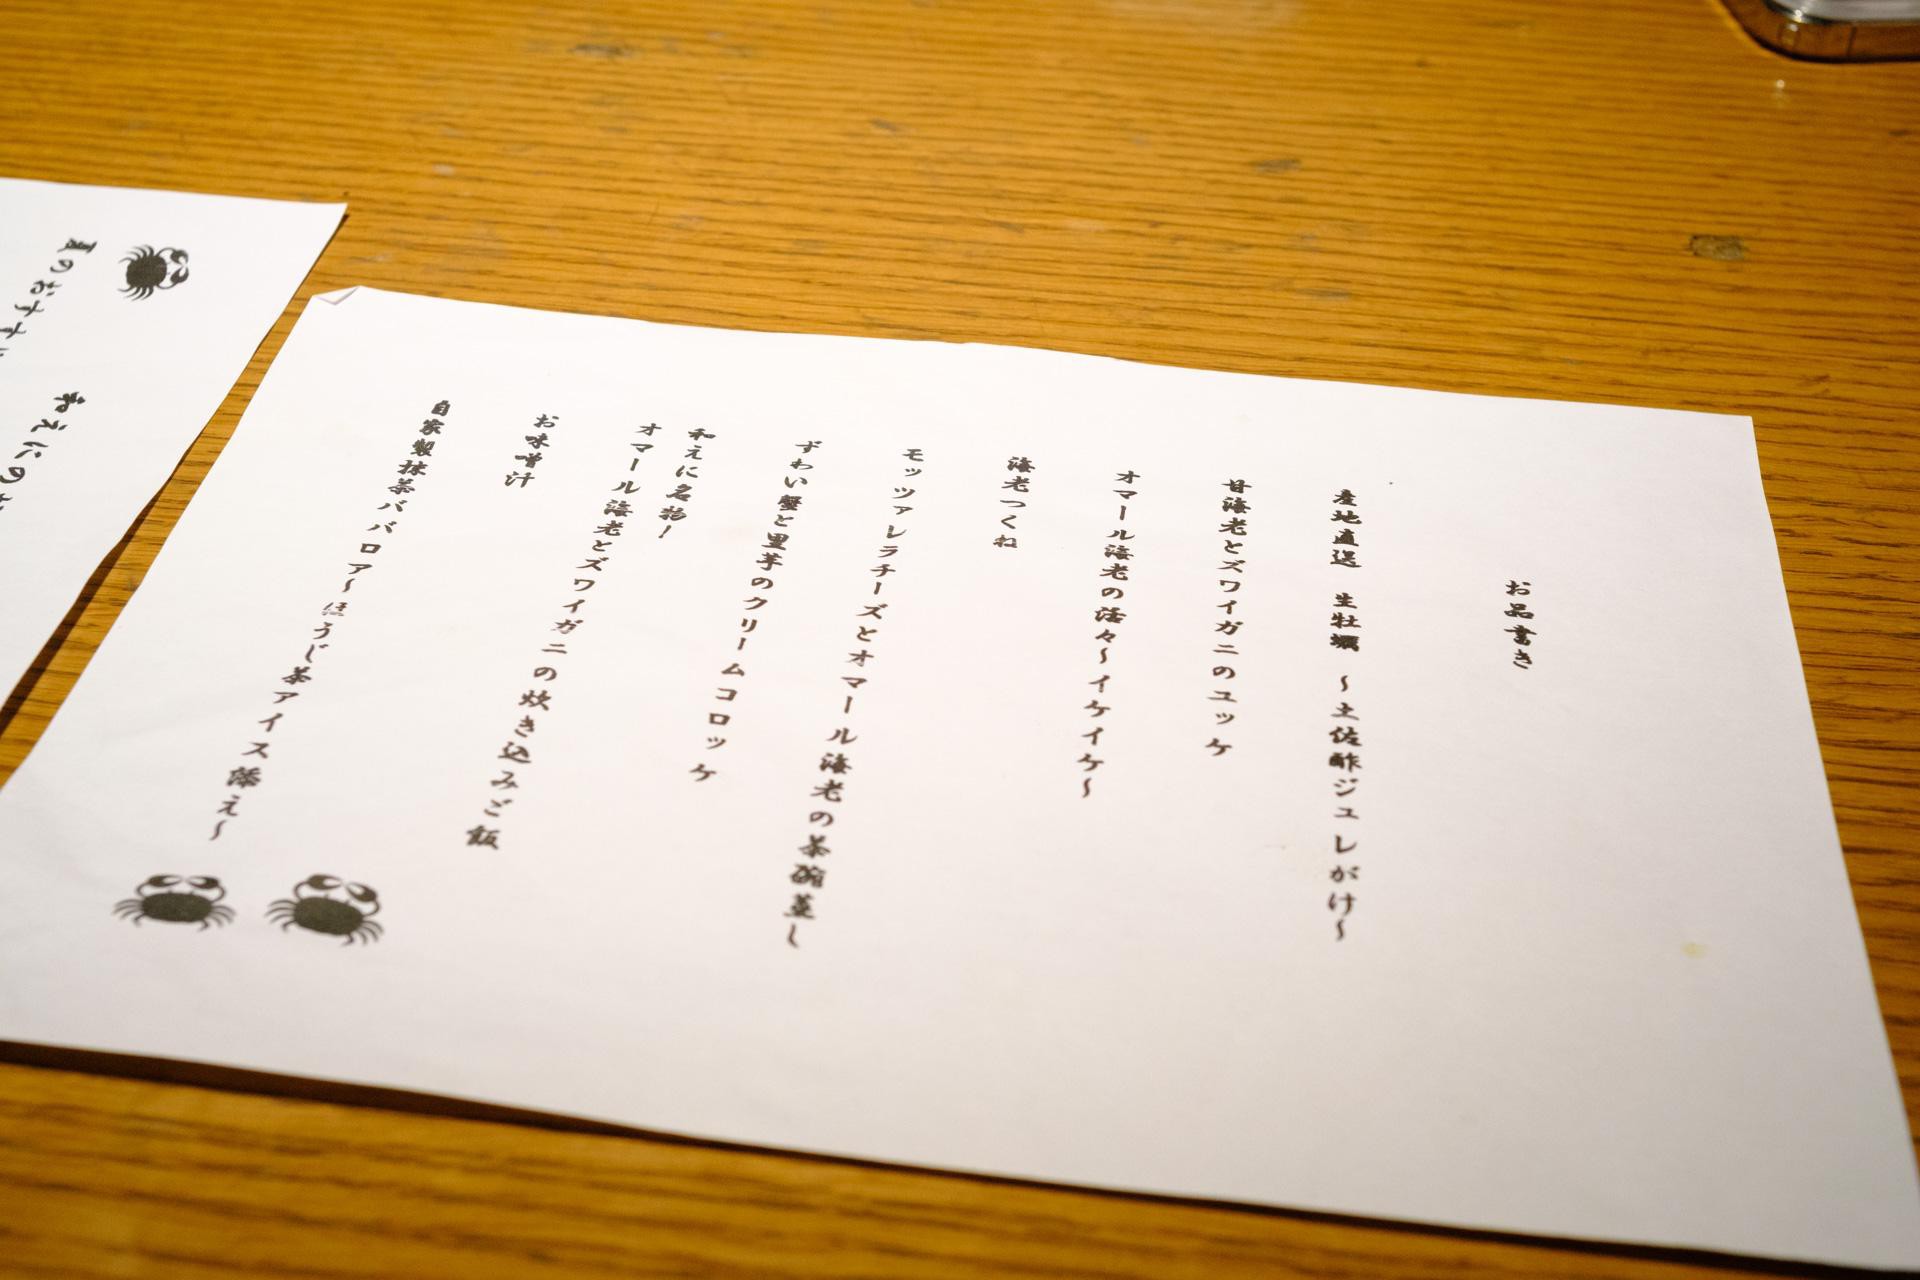 お品書き
産地直送　生牡蠣　～土佐酢ジュレがけ～
甘海老とズワイガニのユッケ
オマール海老の活々～イケイケ～
海老つくね
モッツァレラチーズとオマール海老の茶碗蒸し
ずわい蟹と里芋のクリームコロッケ
和えに名物！
オマール海老とズワイガニの炊き込みご飯
お味噌汁
自家製抹茶ババロア～ほうじ茶アイス添え～
夏のおすす
和えにの